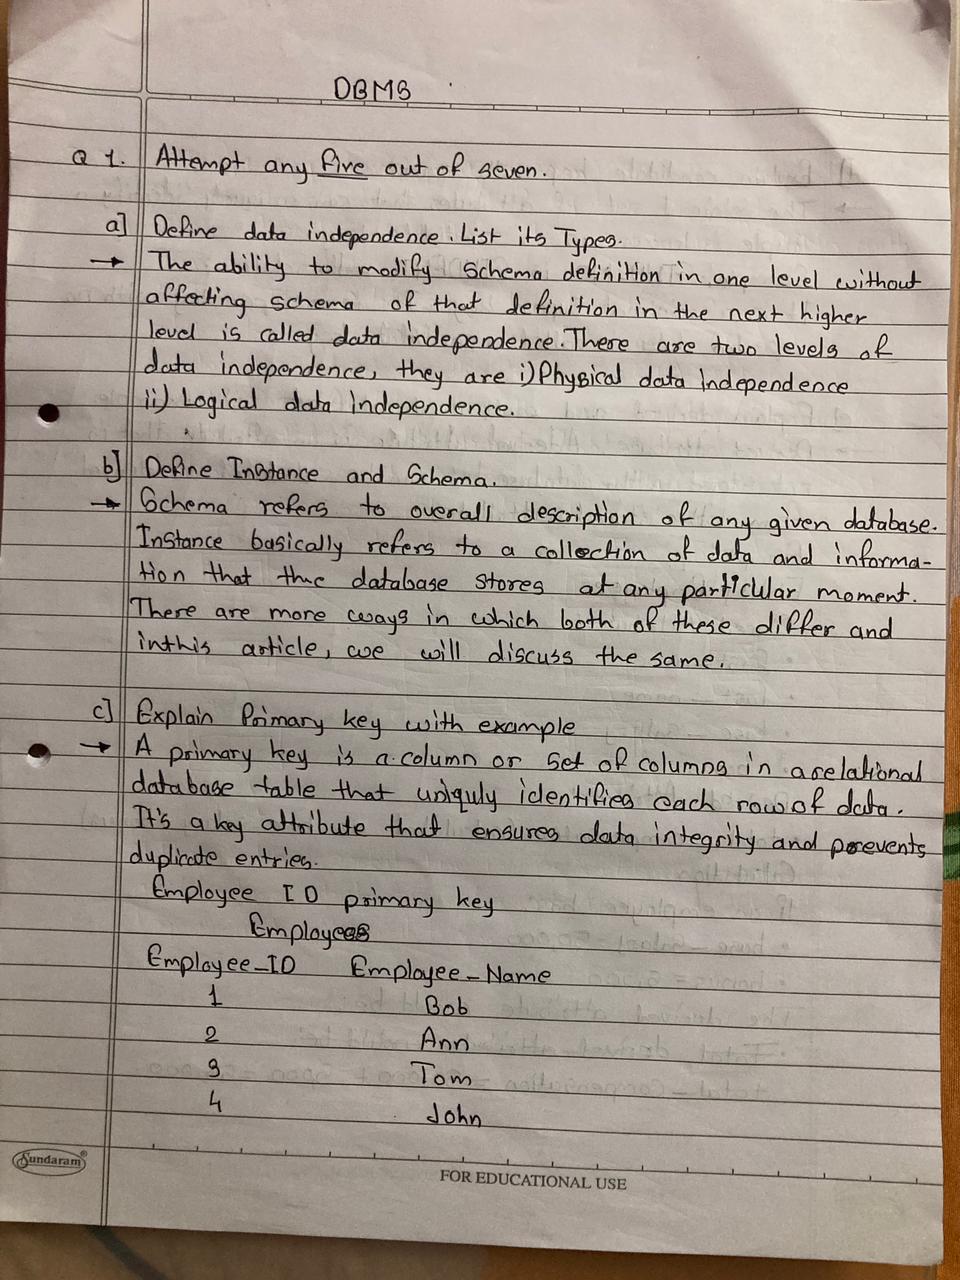 DBMS
Q 1. Attempt any five out of seven.
a] Define data independence. List its Types.
→ The ability to modify schema definition in one level without
affecting schema of that definition in the next higher
level is called data independence. There are two levels of
data independence, they are i) Physical data Independence
ii) Logical data independence.
b] Define Instance and Schema.
→ Schema refers to overall description of any given database.
Instance basically refers to a collection of data and informa-
tion that the database stores at any particular moment.
There are more ways in which both of these differ and
inthis article, we will discuss the same.
c] Explain Primary key with example
→ A primary key is a column or set of columns in a relational
database table that uniquly identifies each row of data.
It's a key attribute that ensures data integrity and prevents
duplicate entries.
Employee ID primary key
Employees
Employee_ID Employee_Name
1 Bob
2 Ann
3 Tom
4 John
Sundaram®
FOR EDUCATIONAL USE